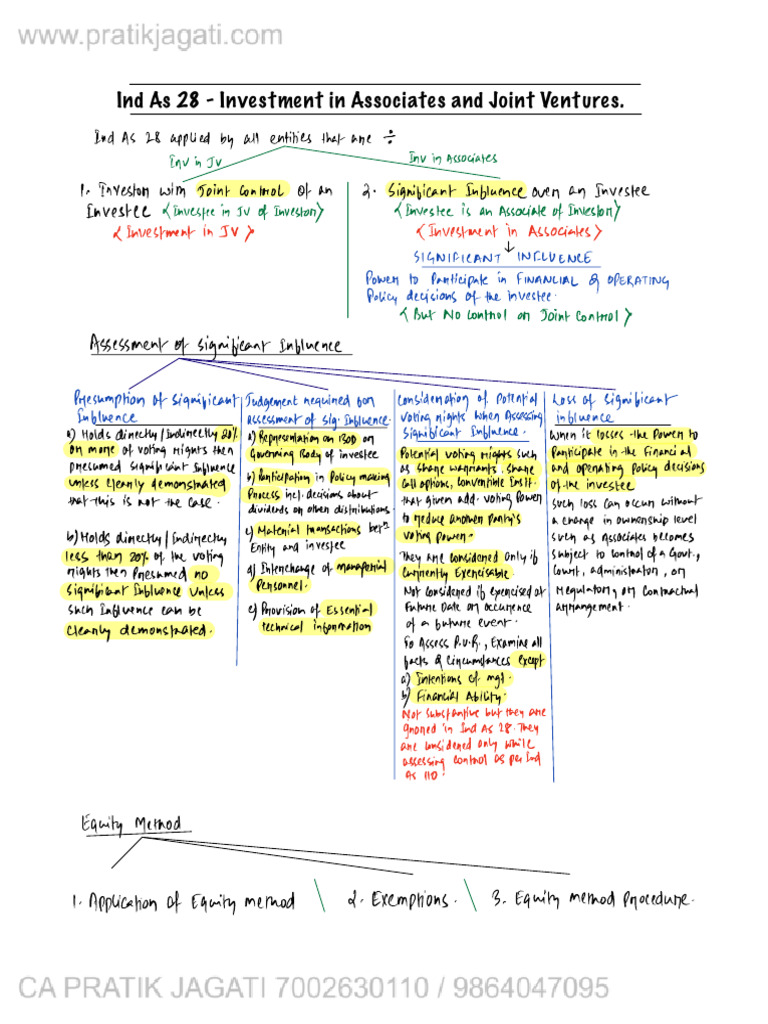 www.pratikjagati.com
Ind As 28 - Investment in Associates and Joint Ventures.
Ind As 28 applied by all entities that are ÷
Inv in JV
Inv in Associates
1. Investor with Joint Control of an
Investee <Investee in JV of Investor>
<Investment in JV>
2. Significant Influence over an Investee
<Investee is an Associate of Investor>
<Investment in Associates>
↓
SIGNIFICANT INFLUENCE
Power to Participate in FINANCIAL & OPERATING
Policy decisions of the investee.
<But No Control or Joint Control>
Assessment of Significant Influence
Presumption of Significant
Influence
a) Holds directly/Indirectly 20%
or more of voting rights then
presumed significant Influence
unless clearly demonstrated
that this is not the case.
b) Holds directly/Indirectly
less than 20% of the voting
rights then Presumed no
significant Influence unless
such Influence can be
clearly demonstrated.
Judgement required for
assessment of sig. Influence.
a) Representation on BOD or
Governing Body of investee
b) Participation in Policy making
Process incl. decisions about
dividends or other distributions.
c) Material transactions betn
Entity and investee
d) Interchange of managerial
Personnel.
e) Provision of Essential
technical information
Consideration of Potential
voting rights when Assessing
Significant Influence.
Potential voting rights such
as share warrants, share
call options, convertible Instt.
that given add. voting Power
to reduce another party's
voting power.
They are considered only if
Currently Exercisable.
Not considered if exercised at
Future Date or occurence
of a future event.
To Assess P.V.R., Examine all
facts & circumstances except
a) Intentions of mgt.
b) Financial Ability.
Not substantive but they are
gnored in Ind As 28. They
are considered only while
assessing control as per Ind
As 110.
Loss of Significant
influence
When it losses the Power to
Participate in the Financial
and operating Policy decisions
of the investee
Such loss can occur without
a change in ownership level
such as Associates becomes
subject to control of a Govt.,
Court, administrator, or
Regulator, or Contractual
arrangement.
Equity Method
1. Application of Equity method
2. Exemptions.
3. Equity method Procedure.
CA PRATIK JAGATI 7002630110 / 9864047095